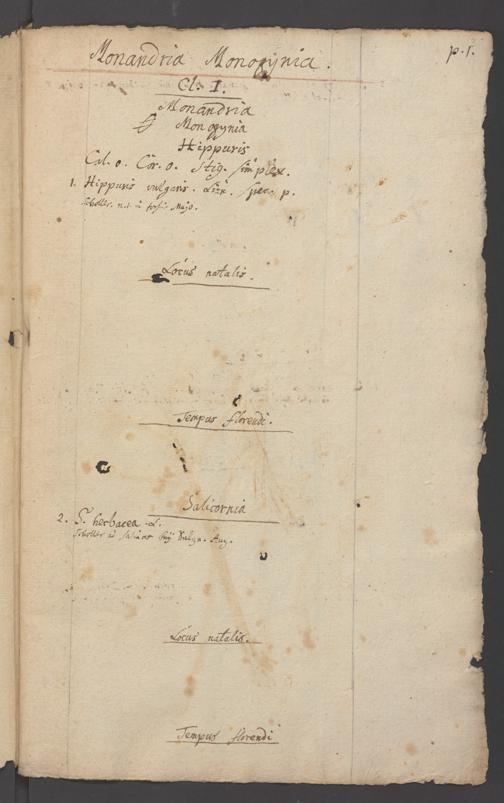 Monandria Monogynia. p. 1.
Cl. I.
Monandria
Monogynia
Hippuris
Cal. o. Cor. o. Stig. simplex.
1. Hippuris vulgaris. Lin. Spec. p.
Scholler. Majo.
Locus natalis.
Tempus florendi.
Salicornia
2. S. herbacea L.
Scholler Aug.
Locus natalis.
Tempus florendi